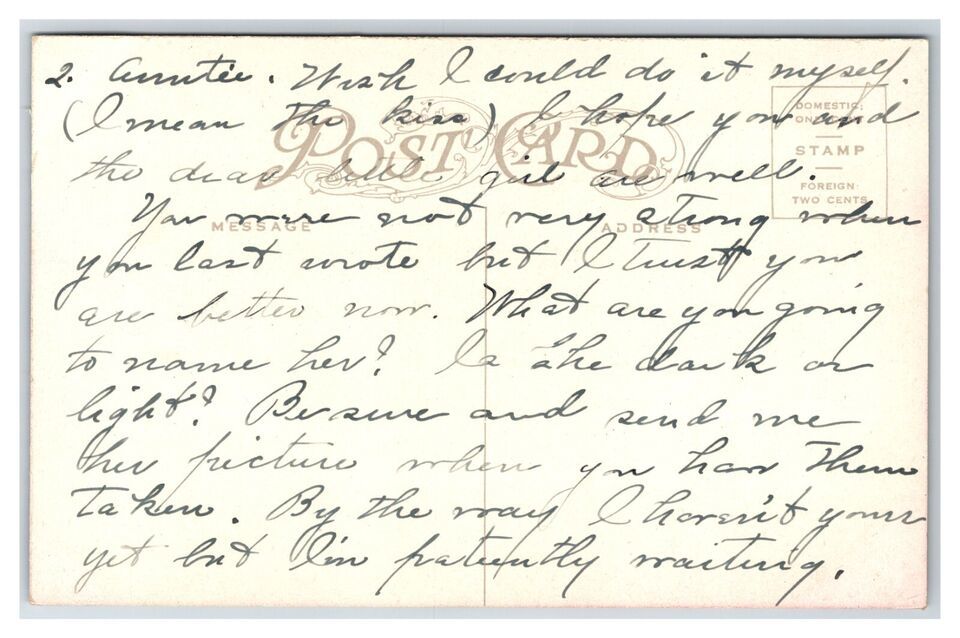 2. Auntie. Wish I could do it myself.
(I mean the kiss) I hope you and
the dear little girl are well.
You were not very strong when
you last wrote but I trust you
are better now. What are you going
to name her? Is she dark or
light? Be sure and send me
her picture when you have them
taken. By the way I haven't yours
yet but I'm patiently waiting.
POST CARD
DOMESTIC:
ONE CENT
STAMP
FOREIGN:
TWO CENTS
MESSAGE
ADDRESS